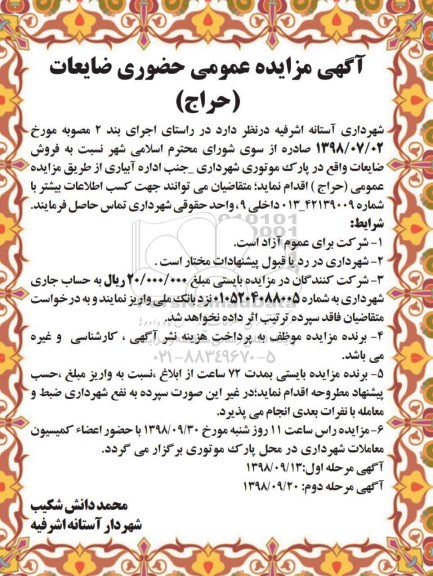 آگهی مزایده عمومی حضوری ضایعات
(حراج)
شهرداری آستانه اشرفیه درنظر دارد در راستای اجرای بند ۲ مصوبه مورخ
۱۳۹۸/۰۷/۰۲ صادره از سوی شورای محترم اسلامی شهر نسبت به فروش
ضایعات واقع در پارک موتوری شهرداری _جنب اداره آبیاری از طریق مزایده
عمومی (حراج ) اقدام نماید؛ متقاضیان می توانند جهت کسب اطلاعات بیشتر با
شماره ۴۲۱۳۹۰۰۹_۰۱۳داخلی ۹، واحد حقوقی شهرداری تماس حاصل فرمایند.
شرایط:
۱- شرکت برای عموم آزاد است .
۲- شهرداری در رد یا قبول پیشنهادات مختار است .
۳- شرکت کنندگان در مزایده بایستی مبلغ ۲۰/۰۰۰/۰۰۰ ریال به حساب جاری
شهرداری به شماره ۰۱۰۵۲۰۴۰۸۸۰۰۵ نزد بانک ملی واریز نمایند و به درخواست
متقاضیان فاقد سپرده ترتیب اثر داده نخواهد شد.
۴- برنده مزایده موظف به پرداخت هزینه نشر آگهی ، کارشناسی و غیره
می باشد.
۵- برنده مزایده بایستی بمدت ۷۲ ساعت از ابلاغ ،نسبت به واریز مبلغ ،حسب
پیشنهاد مطروحه اقدام نماید؛در غیر این صورت سپرده به نفع شهرداری ضبط و
معامله با نفرات بعدی انجام می پذیرد.
۶-مزایده راس ساعت ۱۱ روز شنبه مورخ ۱۳۹۸/۰۹/۳۰ با حضور اعضاء کمیسیون
معاملات شهرداری در محل پارک موتوری برگزار می گردد.
آگهی مرحله اول:۱۳۹۸/۰۹/۱۳
آگهی مرحله دوم: ۱۳۹۸/۰۹/۲۰
محمد دانش شکیب
شهردار آستانه اشرفیه
۰۲۱-۸۸۳۴۹۶۷۰-۵